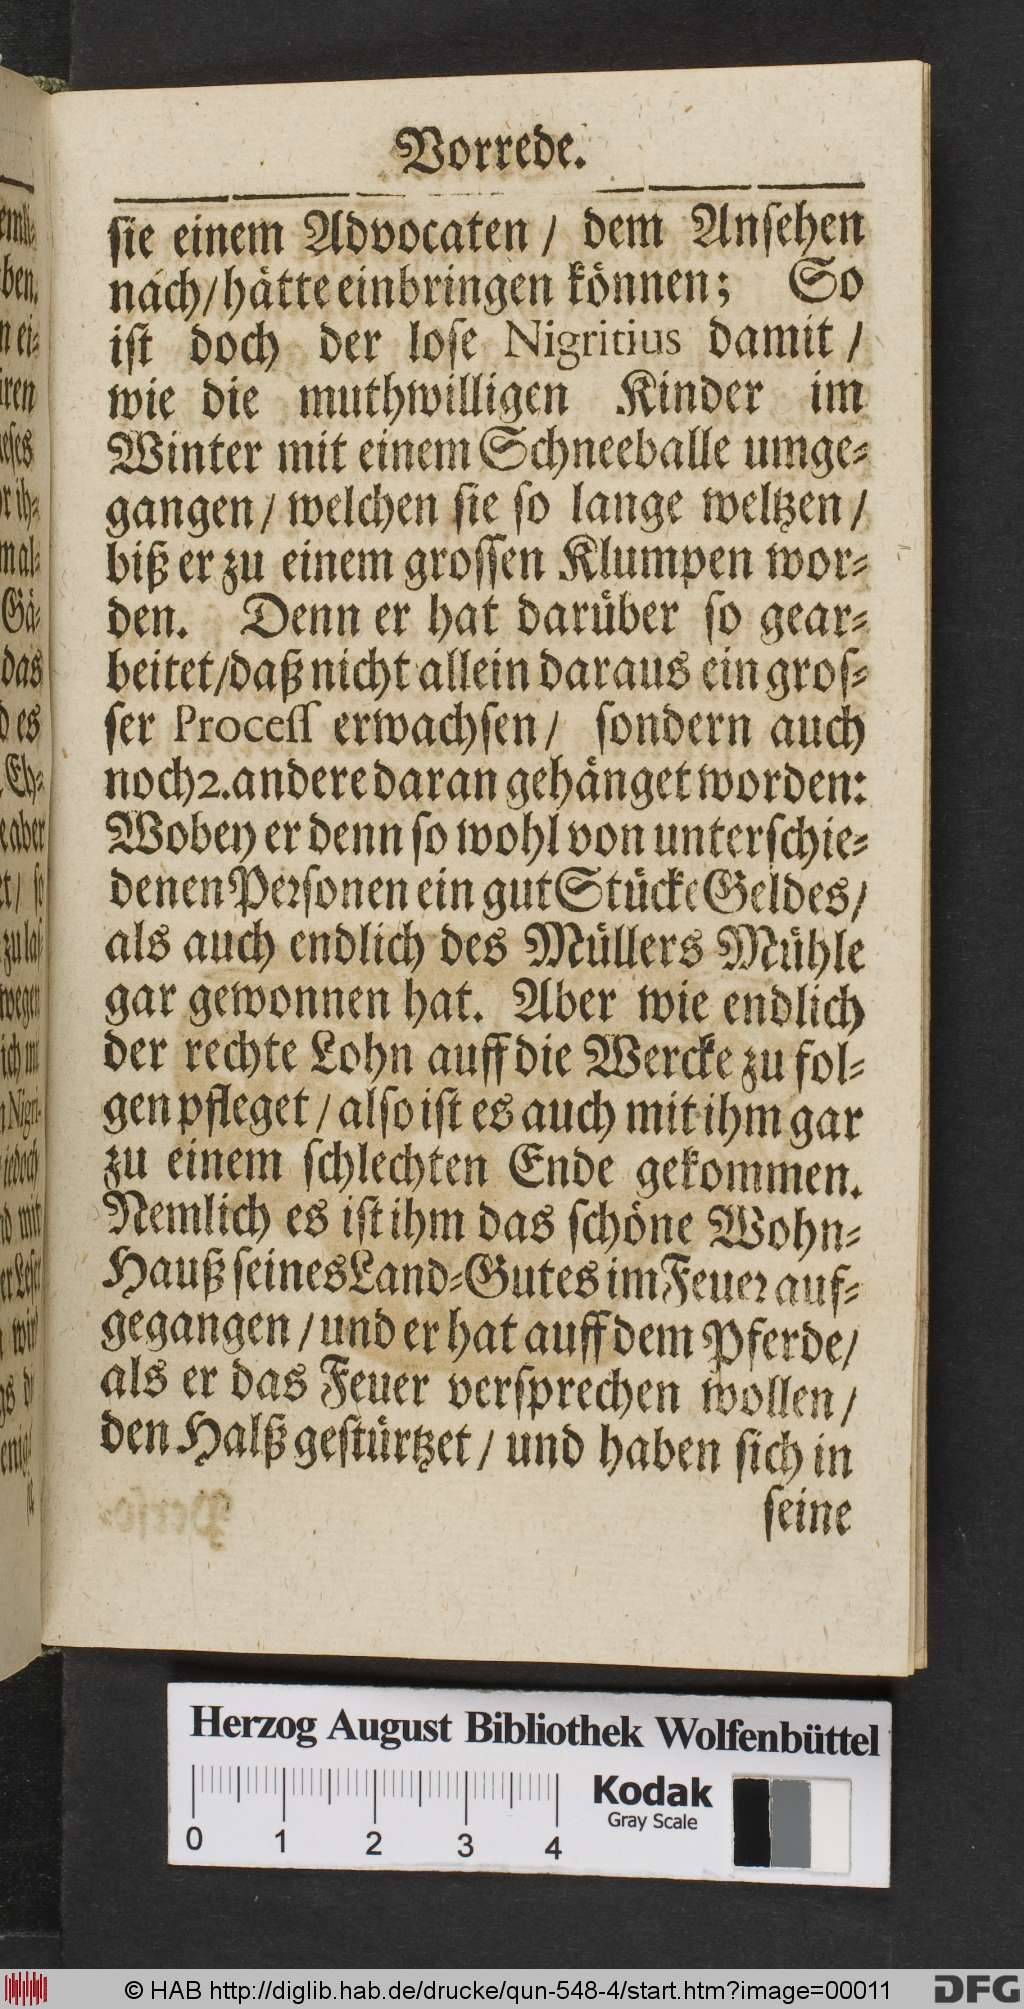 Vorrede.
ſie einem Advocaten / dem Anſehen
nach / hätte einbringen können; So
iſt doch der loſe Nigritius damit /
wie die muthwilligen Kinder im
Winter mit einem Schneeballe umge-
gangen / welchen ſie ſo lange weltzen /
biß er zu einem groſſen Klumpen wor-
den. Denn er hat darüber ſo gear-
beitet / daß nicht allein daraus ein groſ-
ſer Proceſſ erwachſen / ſondern auch
noch 2. andere daran gehänget worden:
Wobey er denn ſo wohl von unterſchie-
denen Perſonen ein gut Stücke Geldes /
als auch endlich des Müllers Mühle
gar gewonnen hat. Aber wie endlich
der rechte Lohn auff die Wercke zu fol-
gen pfleget / alſo iſt es auch mit ihm gar
zu einem ſchlechten Ende gekommen.
Nemlich es iſt ihm das ſchöne Wohn-
Hauß ſeines Land-Gutes im Feuer auf-
gegangen / und er hat auff dem Pferde /
als er das Feuer verſprechen wollen /
den Halß geſtürtzet / und haben ſich in
ſeine
Herzog August Bibliothek Wolfenbüttel
Kodak
Gray Scale
0 1 2 3 4
© HAB http://diglib.hab.de/drucke/qun-548-4/start.htm?image=00011
DFG